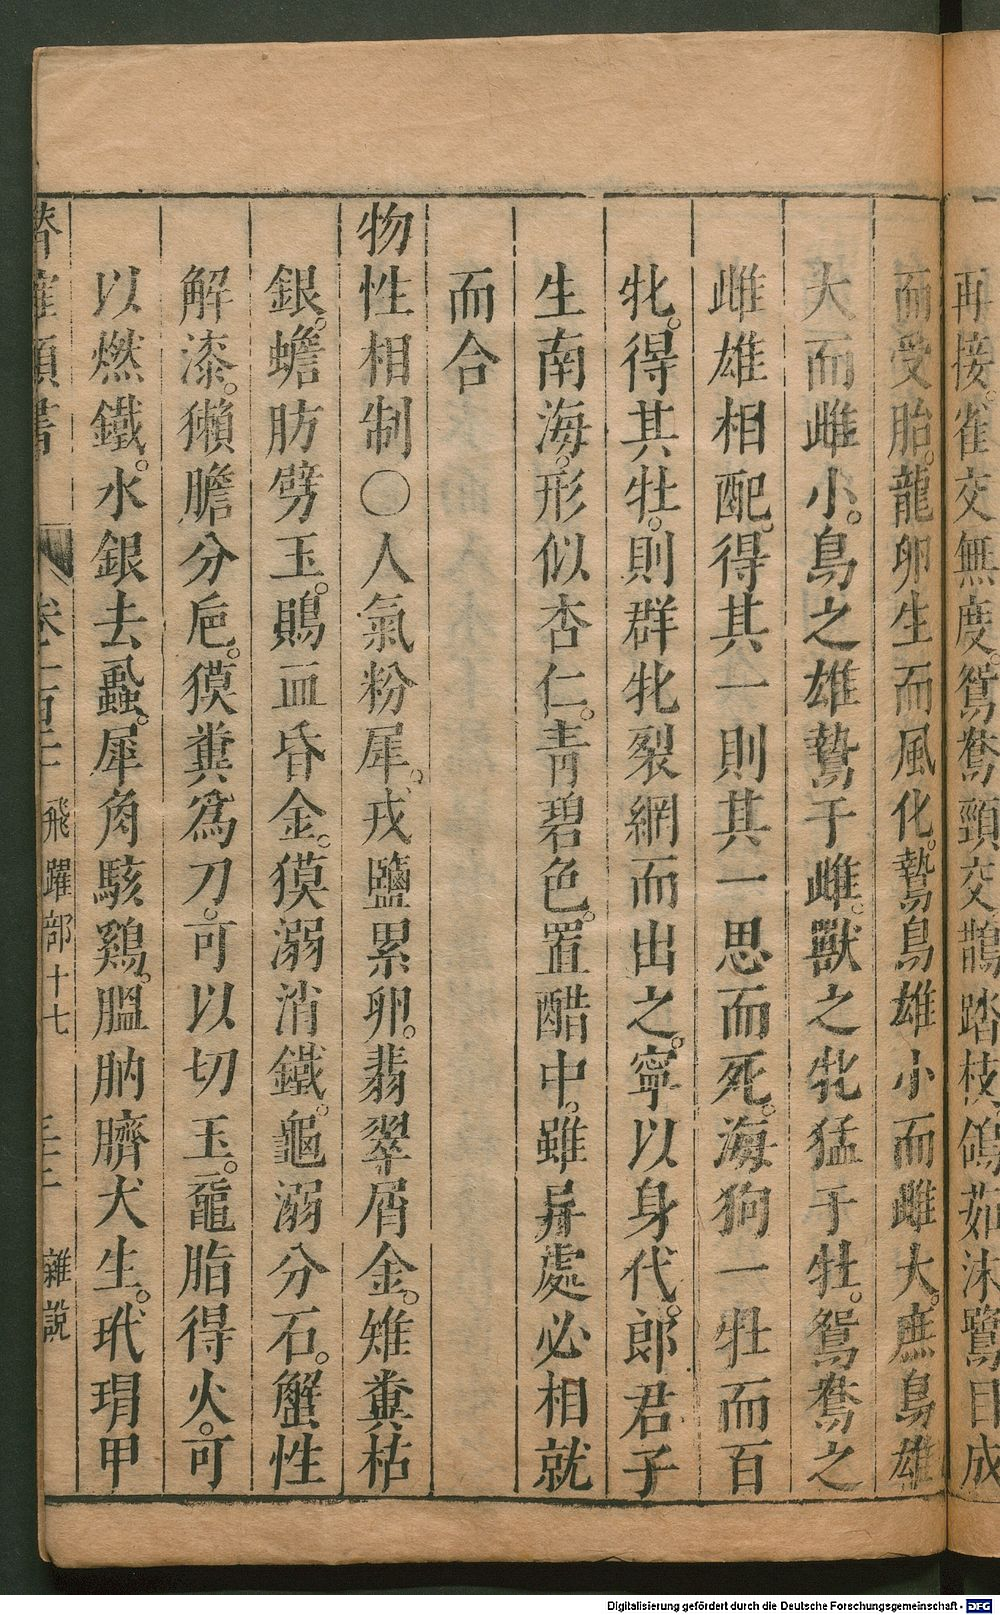 再接。雀交無度。鴛鴦頸交。鵲踏枝。鴿茹沫。鷺目成
而受胎。龍卵生而風化。鷙鳥雄小而雌大。庶鳥雄
大而雌小。鳥之雄鷙于雌。獸之牝猛于牡。鴛鴦之
雌雄相配。得其一則其一思而死。海狗一牡而百
牝。得其牡。則群牝裂網而出之。寧以身代。郎君子
生南海。形似杏仁。青碧色。置醋中。雖异處必相就
而合
物性相制〇人氣粉犀。戎鹽累卵。翡翠屑金。雉糞枯
銀。蟾肪劈玉。鵙血昏金。獏溺消鐵。龜溺分石。蟹性
解漆。獺膽分巵。獏糞為刀。可以切玉。鼉脂得火。可
以燃鐵。水銀去蝨。犀角駭鷄。膃肭臍犬生。玳瑁甲
飛躍部十七
雜說
Digitalisierung gefördert durch die Deutsche Forschungsgemeinschaft - DFG